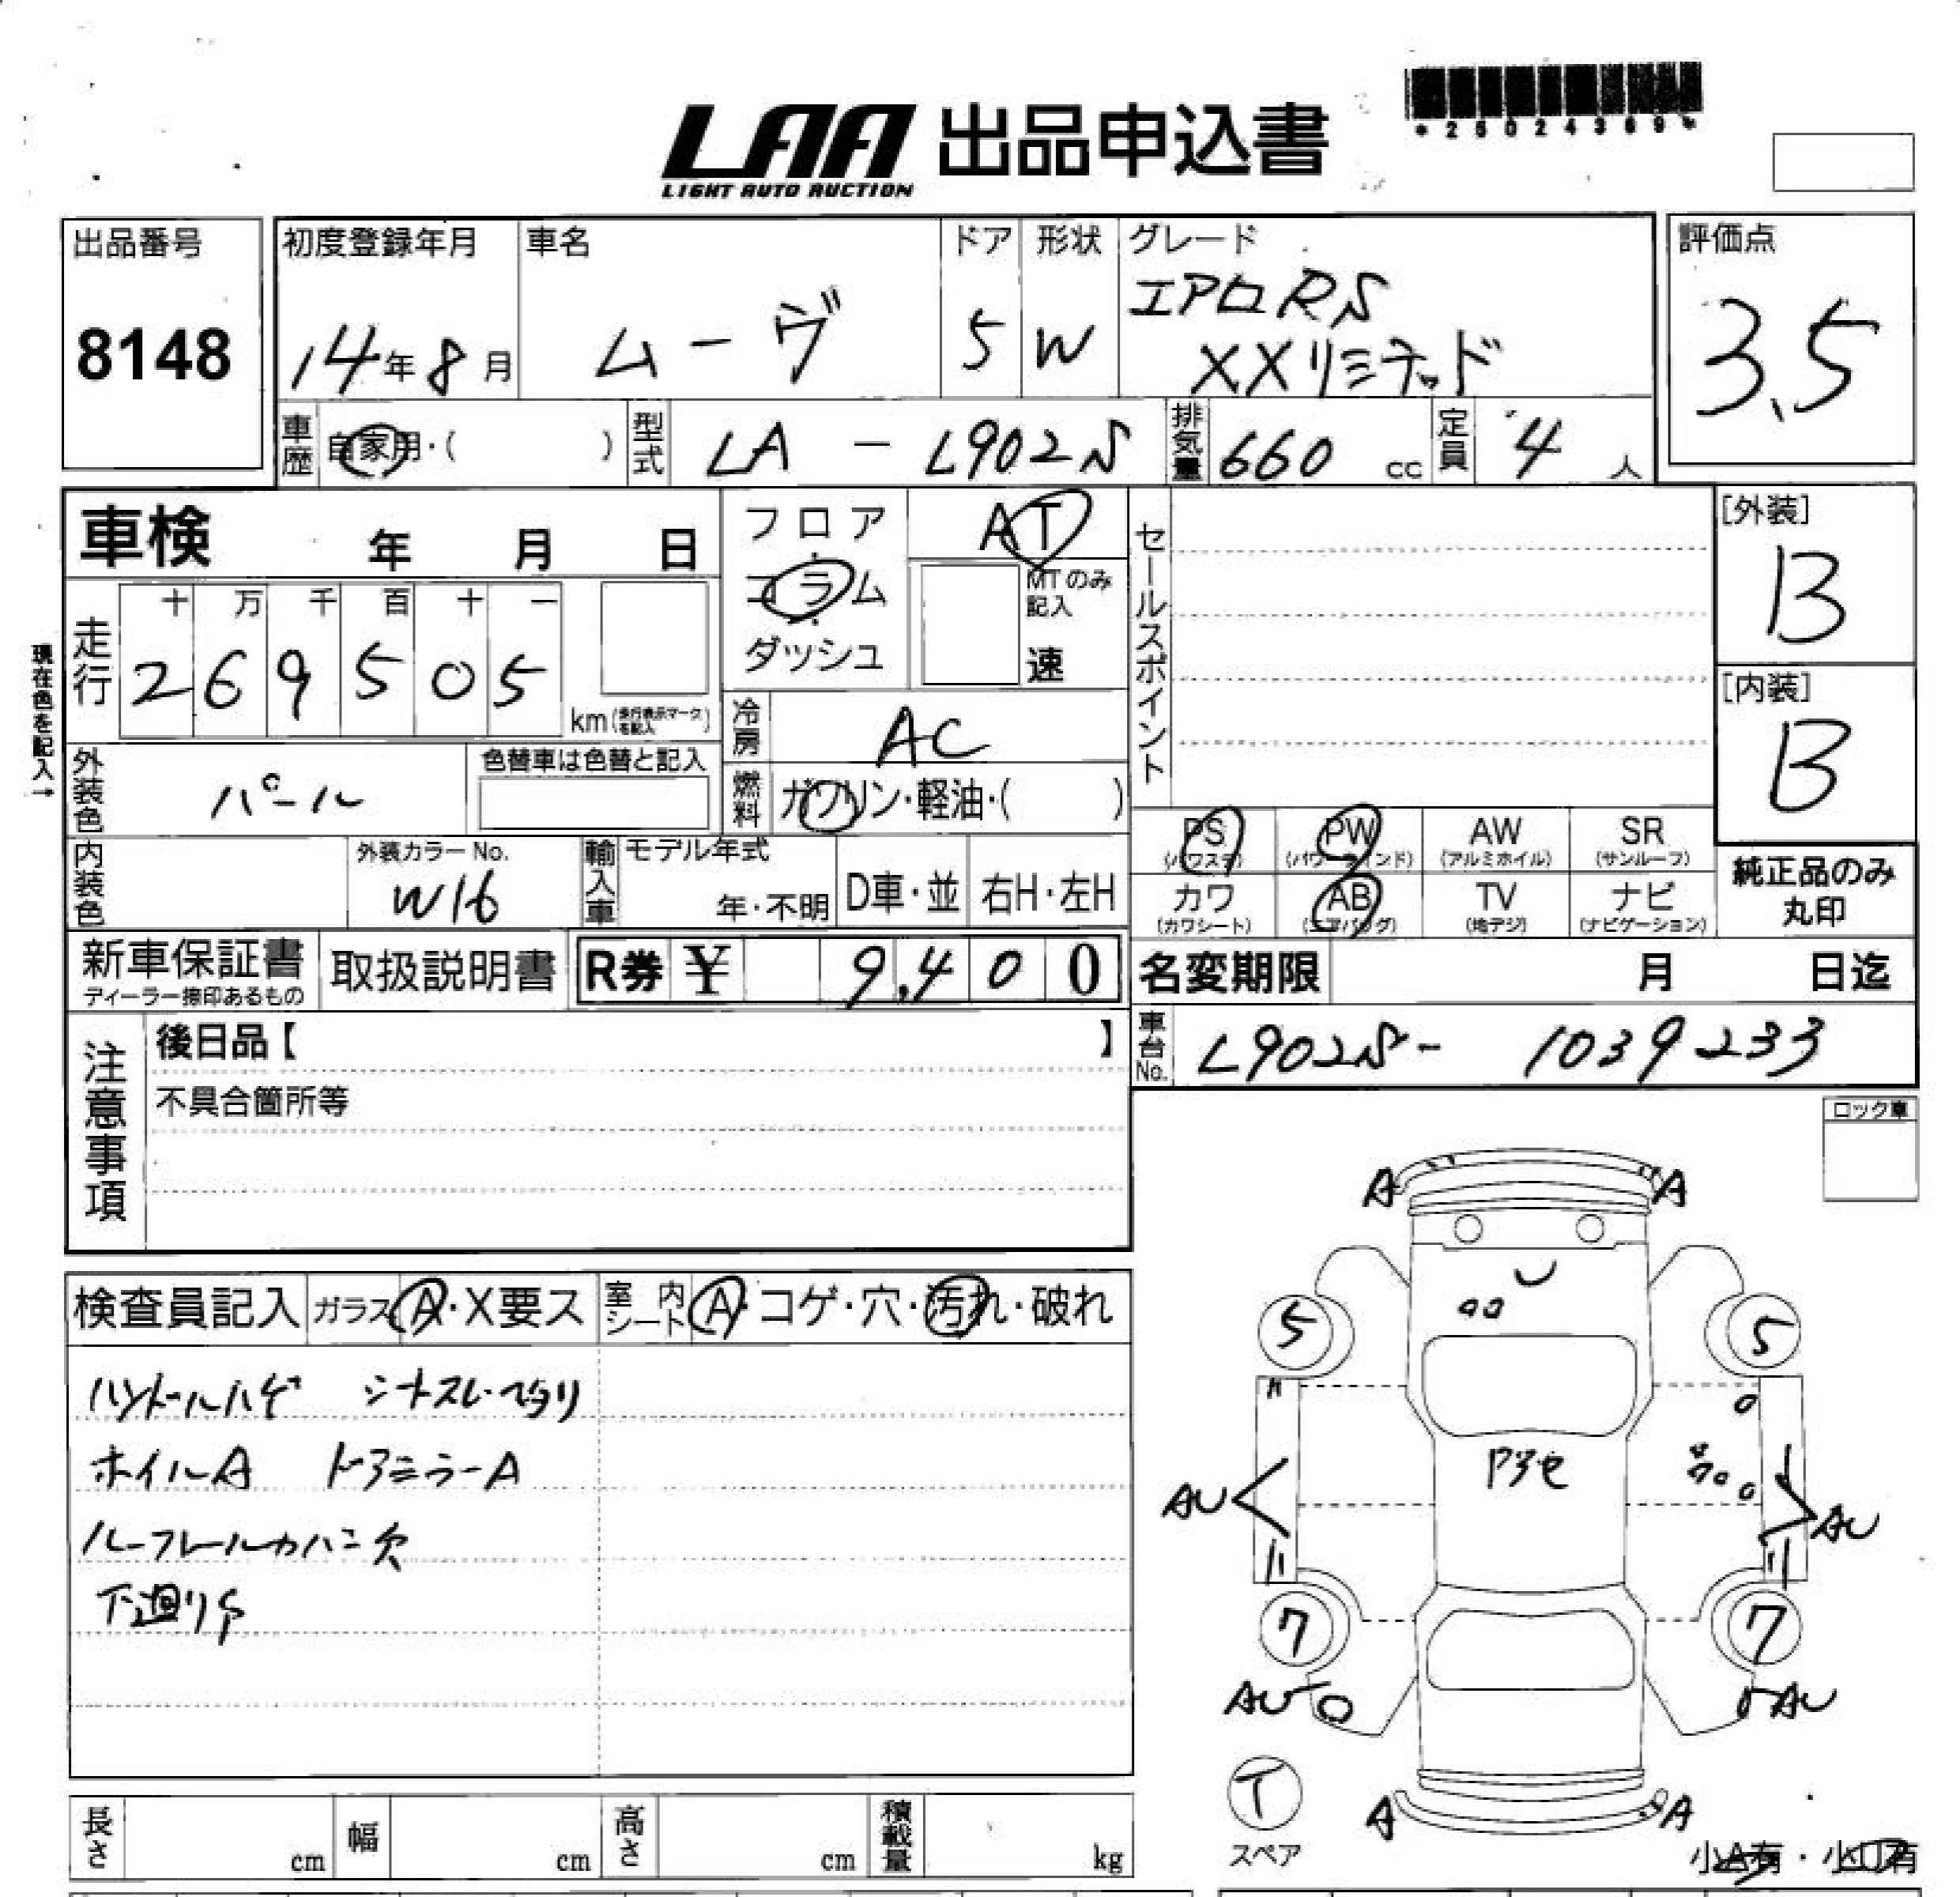 LAA 出品申込書
LIGHT AUTO AUCTION
*25024369*
出品番号
8148
初度登録年月
14年8月
車名
ムーヴ
ドア
5
形状
W
グレード
エアロRS
XXリミテッド
評価点
3.5
車歴
自家用・( )
型式
LA - L902S
排気量
660 cc
定員
4 人
車検 年 月 日
フロア
コラム
ダッシュ
AT
MTのみ
記入
速
セールスポイント
[外装]
B
[内装]
B
現在色を記入→
走行
十 万 千 百 十 一
2 6 9 5 0 5
km(走行表示マークを記入)
冷房
AC
外装色
パール
色替車は色替と記入
燃料
ガソリン・軽油・( )
PS
(パワステ)
PW
(パワーウインド)
AW
(アルミホイル)
SR
(サンルーフ)
内装色
外装カラーNo.
W16
輸入車
モデル年式
年・不明
D車・並
右H・左H
カワ
(カワシート)
AB
(エアバッグ)
TV
(地デジ)
ナビ
(ナビゲーション)
純正品のみ
丸印
新車保証書
ディーラー捺印あるもの
取扱説明書
R券 ¥ 9,400
名変期限 月 日迄
注意事項
後日品【 】
不具合箇所等
車台No.
L902S- 1039233
ロック車
検査員記入
ガラス A・X要ス
室内
シート
A・コゲ・穴・汚れ・破れ
ハンドルハゲ シートスレ・ヘタリ
ホイルA ドアミラーA
ルーフレールカバー欠
下廻りS
A A
5 5
AU AU
7 7
AU
AU
T
スペア
A A
小A有・小U有
長さ cm
幅 cm
高さ cm
積載量 kg